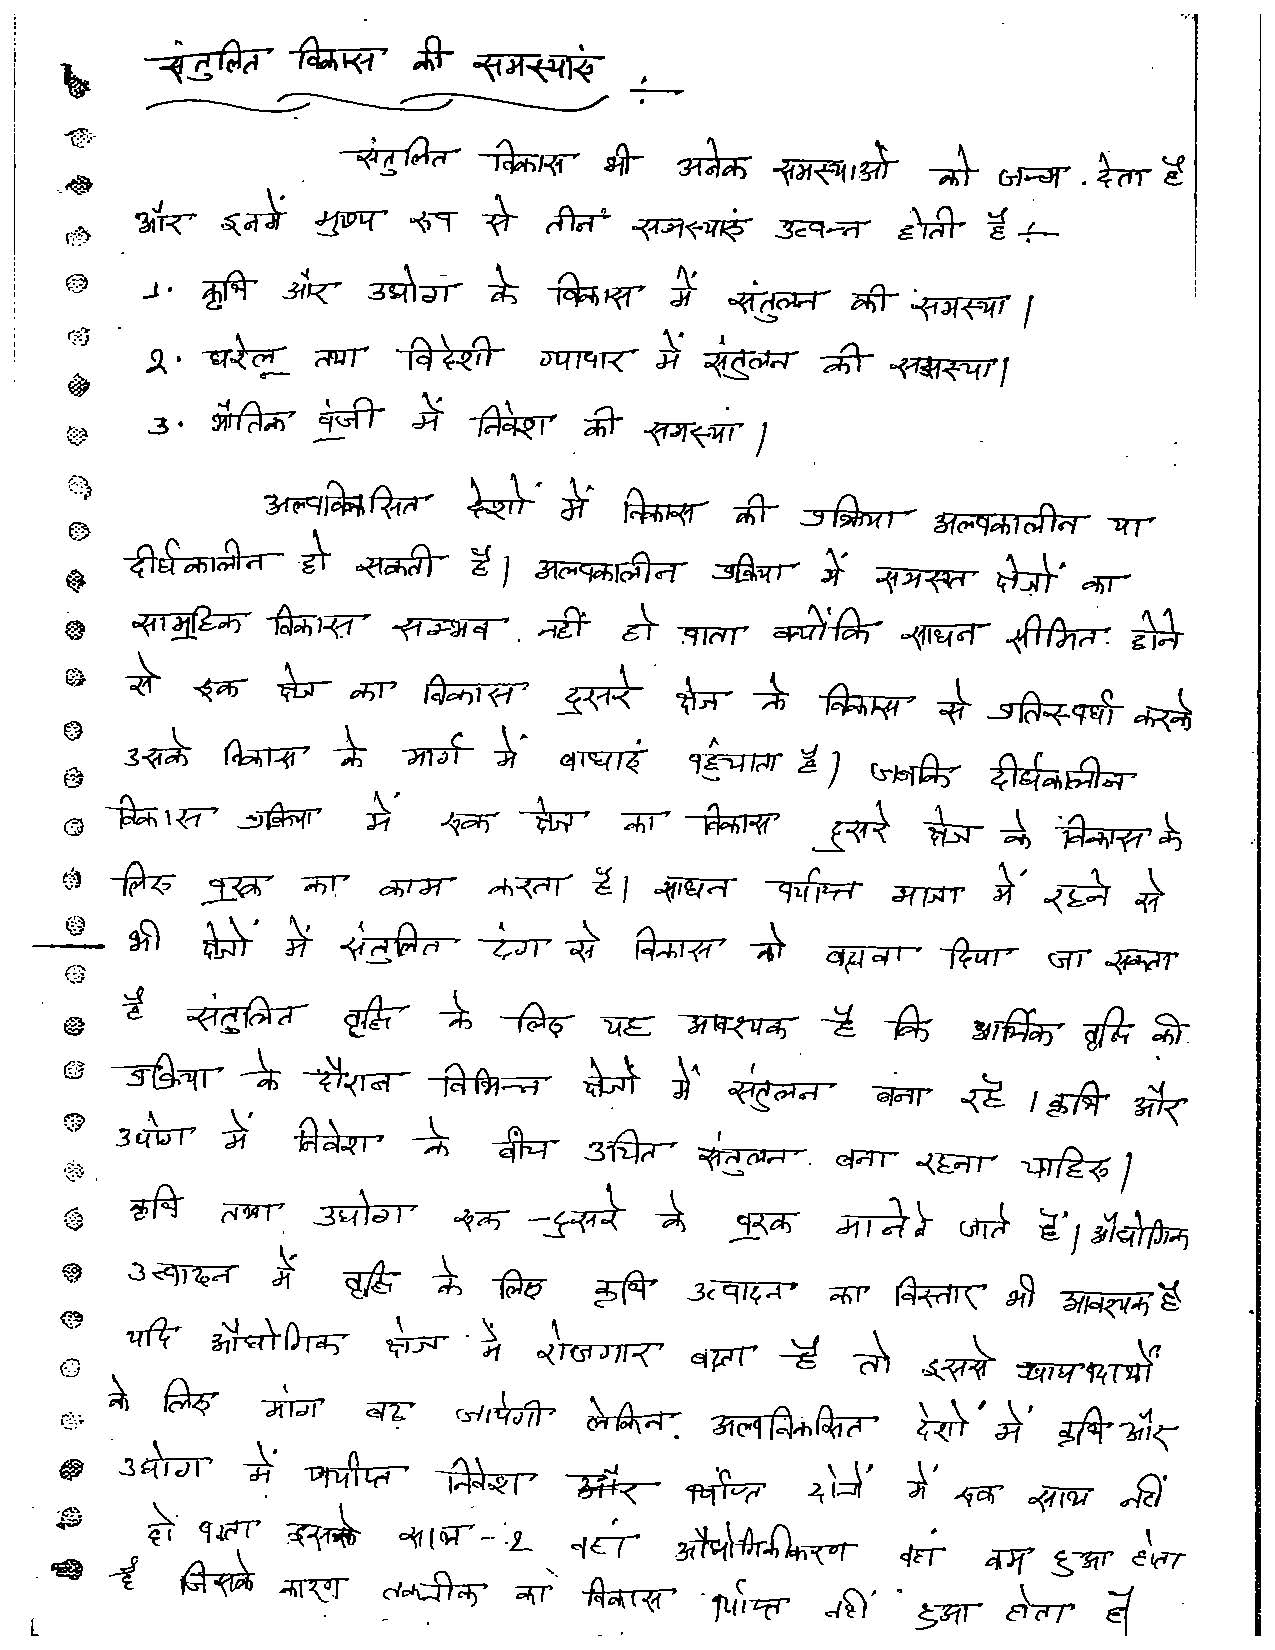 संतुलित विकास की समस्याएं :-
संतुलित विकास भी अनेक समस्याओं को जन्म देता है
और इनमें मुख्य रूप से तीन समस्याएं उत्पन्न होती है :-
1. कृषि और उद्योग के विकास में संतुलन की समस्या।
2. घरेलू तथा विदेशी व्यापार में संतुलन की समस्या।
3. भौतिक पूंजी में निवेश की समस्या।
अल्पविकसित देशों में विकास की प्रक्रिया अल्पकालीन या
दीर्घकालीन हो सकती है। अल्पकालीन प्रक्रिया में समस्त क्षेत्रों का
सामूहिक विकास सम्भव नहीं हो पाता क्योंकि साधन सीमित होने
से एक क्षेत्र का विकास दुसरे क्षेत्र के विकास से प्रतिस्पर्धा करके
उसके विकास के मार्ग में बाधाएं पहुंचाता है। जबकि दीर्घकालीन
विकास प्रक्रिया में एक क्षेत्र का विकास दुसरे क्षेत्र के विकास के
लिए पूरक का काम करता है। साधन पर्याप्त मात्रा में रहने से
भी क्षेत्रों में संतुलित ढंग से विकास को बढ़ावा दिया जा सकता
है संतुलित वृद्धि के लिए यह आवश्यक है कि आर्थिक वृद्धि की
प्रक्रिया के दौरान विभिन्न क्षेत्रों में संतुलन बना रहे। कृषि और
उद्योग में निवेश के बीच उचित संतुलन बना रहना चाहिए।
कृषि तथा उद्योग एक-दुसरे के पूरक माने जाते हैं। औद्योगिक
उत्पादन में वृद्धि के लिए कृषि उत्पादन का विस्तार भी आवश्यक है
यदि औद्योगिक क्षेत्र में रोजगार बढ़ता है तो इससे खाद्य पदार्थों
के लिए मांग बढ़ जायेगी लेकिन अल्पविकसित देशों में कृषि और
उद्योग में पर्याप्त निवेश और पर्याप्त दोनों में एक साथ नहीं
हो पाता इसके साथ-2 वहां औद्योगिकीकरण वहां कम हुआ होता
है जिसके कारण तकनीक का विकास पर्याप्त नहीं हुआ होता है